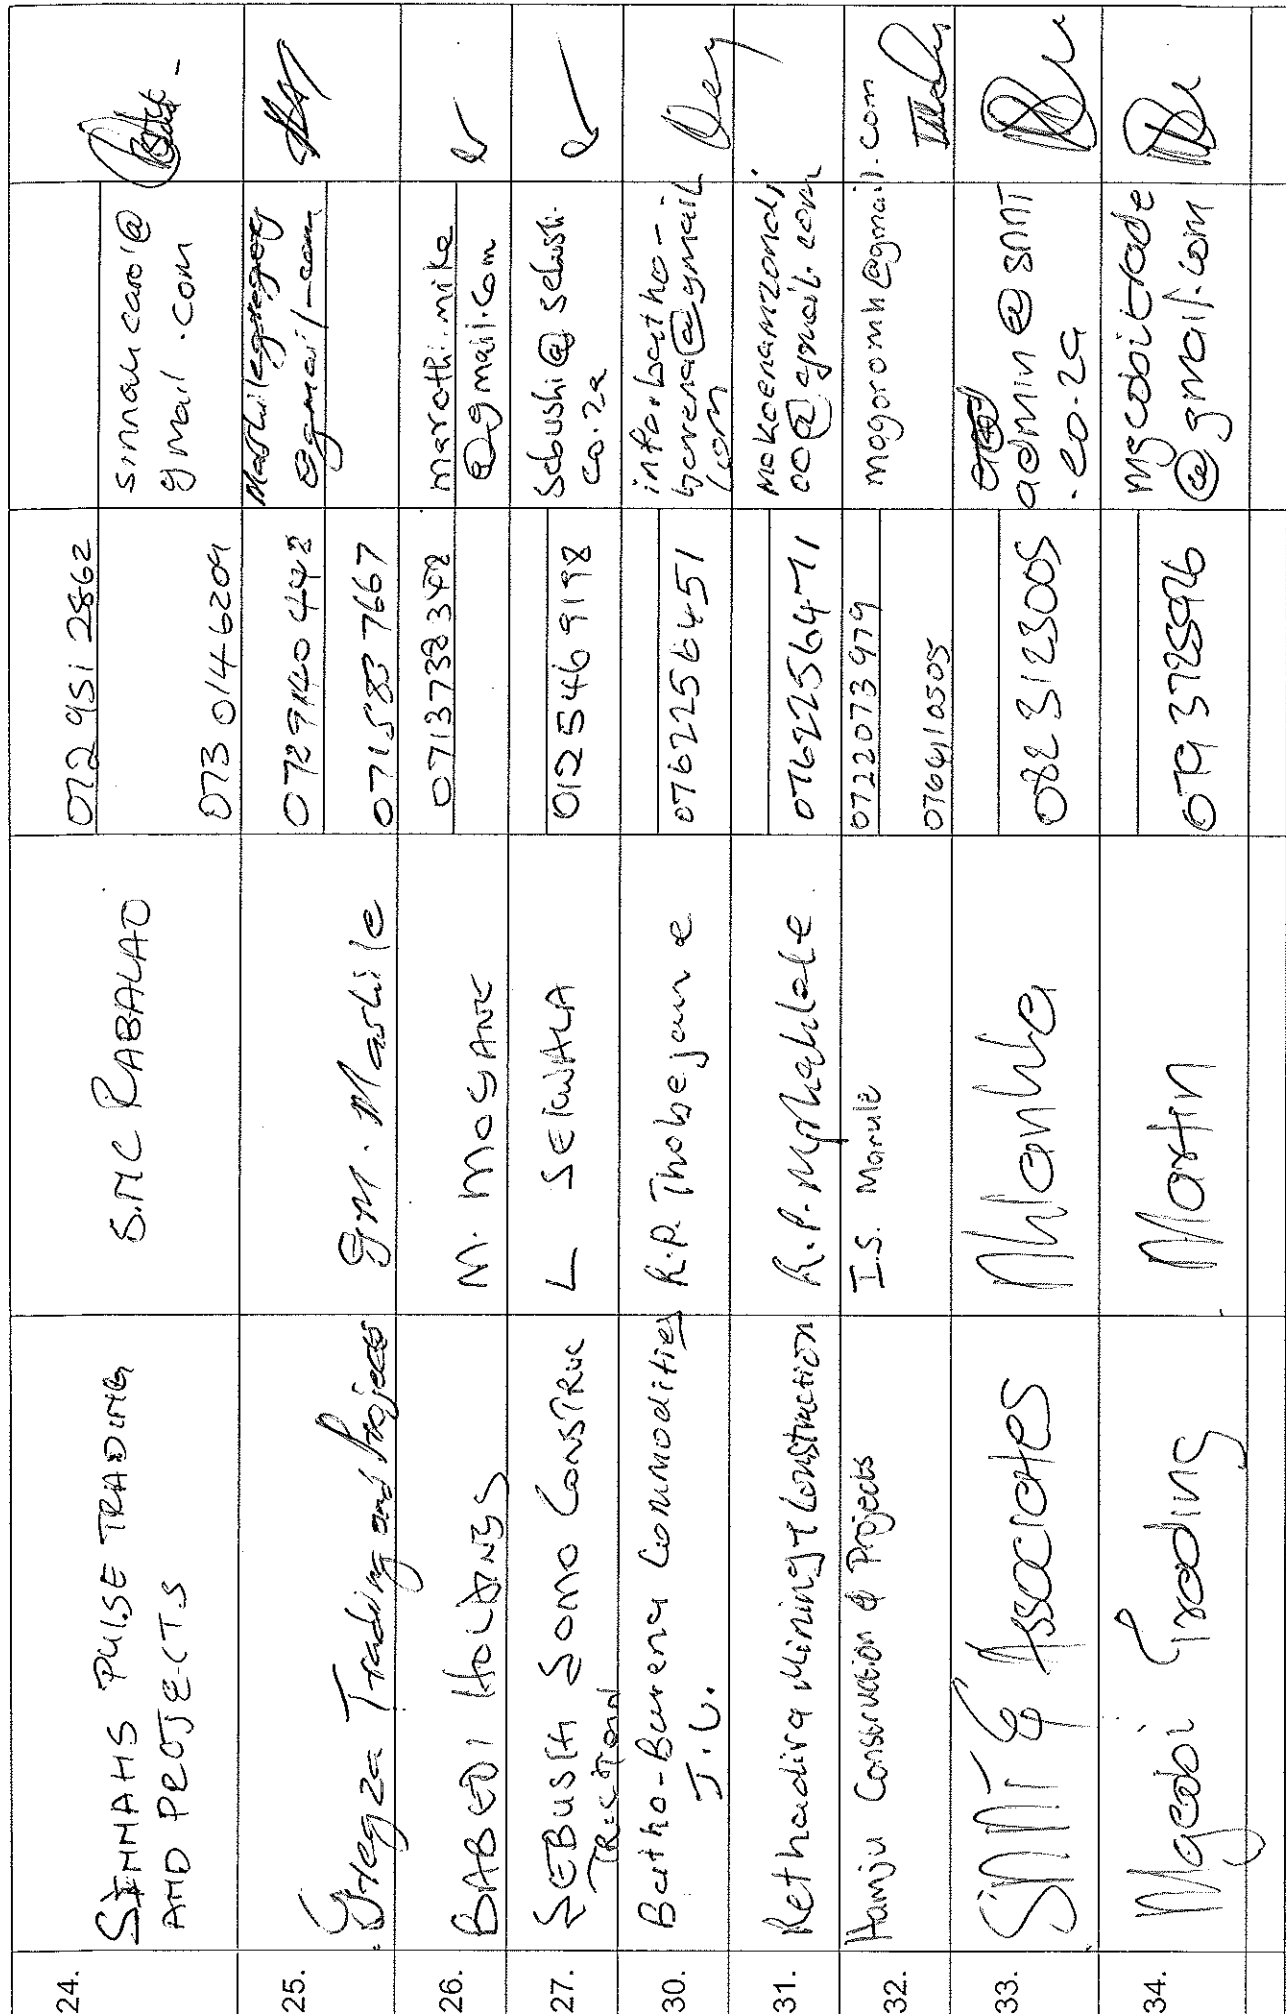 24.
SINNAHS PULSE TRADING
AND PROJECTS
S.MC RABALAO
072 951 2862
073 014 6209
sinnah.carol@
gmail.com
25.
Gregza Trading and Projects
G.M. Mashile
0729140 442
071 583 7667
Mashilegregory
@gmail.com
26.
BABEDI HOLDINGS
M. MOGANE
0713738342
marothi.mike
@gmail.com
27.
SEBUSHI SOMO CONSTRUC
L SEKWALA
012 546 9198
Sebushi@sebushi.
co.za
30.
Batho-Barena Commodities
J.V.
R.P. Thobejane
0762256451
info.batho-
barena@gmail
com
31.
Rethadira Mining & Construction
R.P. Mphahlele
0762256471
mokoenamzondi
00@gmail.com
32.
Hamju Conservation & Projects
I.S. Marule
0722073979
0766410505
mogoromh@gmail.com
33.
SMMT & Associates
Nhlanhla
0823123005
admin@smmt
.co.za
34.
Mgcobi Trading
Martin
0793725926
mgcobitrade
@gmail.com